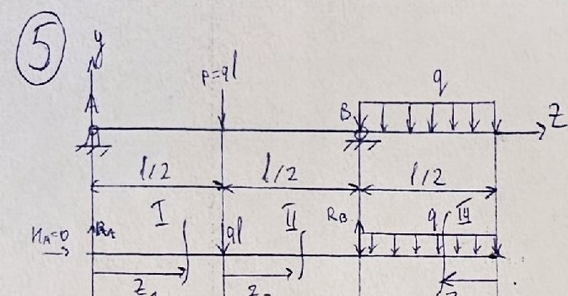 5
y
P=ql
A
B
q
Z
l/2 l/2 l/2
I II III
H_A=0 R_A ql R_B q
z_1 z_2